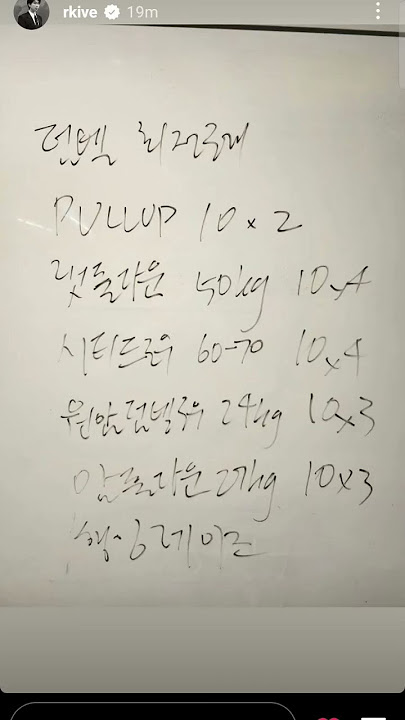 rkive 19m
덤벨 회전근개
PULLUP 10×2
랫풀다운 50kg 10×4
시티드로우 60-70 10×4
원암덤벨로우 24kg 10×3
암풀다운 27kg 10×3
행잉레이즈